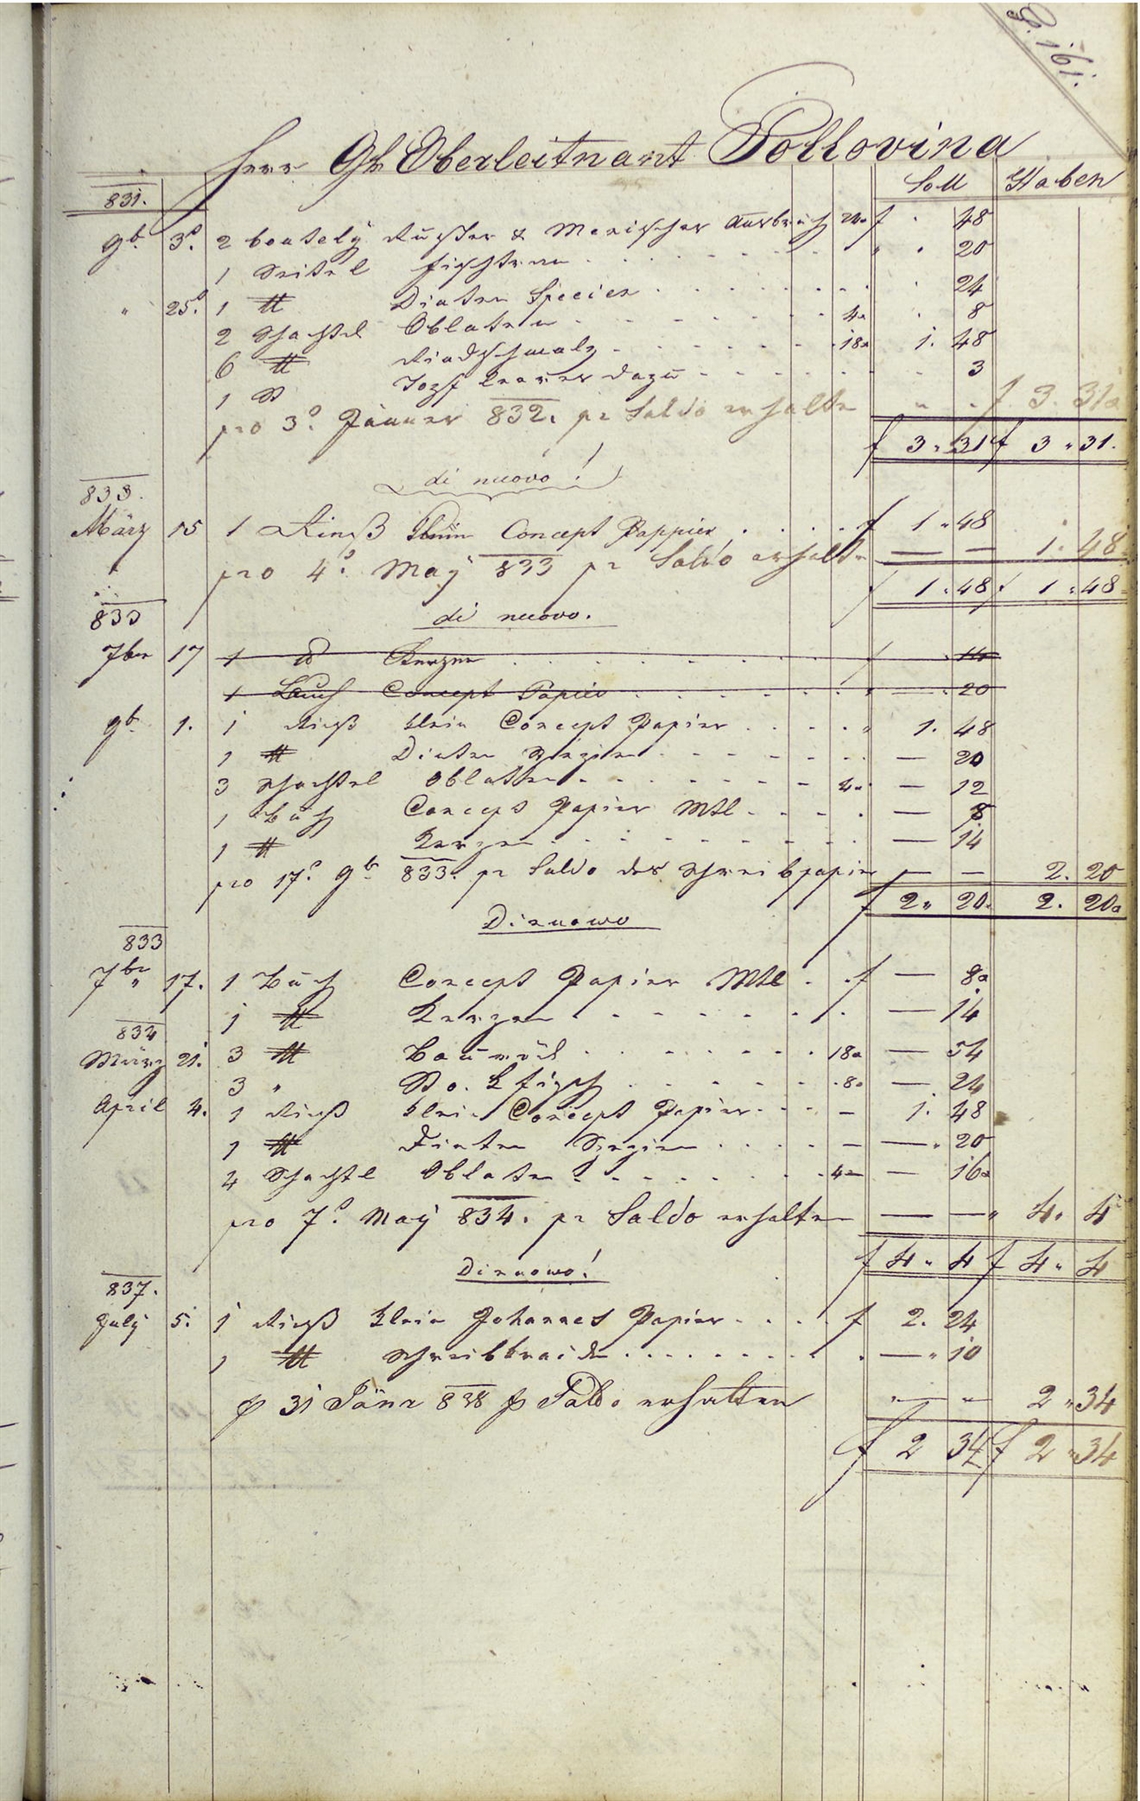 161.
Herr Oberleitnant Pollovina
Soll Haben
831.
9br 3. 2 boutely Ruster & Ausbruch 24 f 48
1 Seitel 20
" 25. 1 ℔ Dinten Species 24
2 Schachtel Oblaten 4 8
6 ℔ Rindschmalz 18 1. 48
1 St dazu 3
pro 3. Jänner 832. pr Saldo erhalten f 3. 31
f 3 " 31 f 3 " 31.
di nuovo!
833.
März 15 1 Rieß Concept Pappier f 1 " 48
pro 4. May 833 pr Saldo erhalten 1. 48
f 1 " 48 f 1 " 48
833
di nuovo.
7ber 17 1 ℔ Kerzen f 14
1 Buch Concept Papier 20
9br 1. 1 Rieß klein Concept Papier 1. 48
1 ℔ Dinten Spezien 20
3 Schachtel Oblatten 4 12
1 Buch Concept Papier Mtl 8
1 ℔ Kerzen 14
pro 17. 9br 833. pr Saldo des Schreibpapier 2. 20
f 2 " 20. 2. 20
Dinuowo
833
7br 17. 1 Buch Concept Papier Mtl f 8
1 ℔ Kerzen 14
834
März 21. 3 ℔ 18 54
3 " Stokfisch 8 24
April 4. 1 Rieß klein Concept Papier 1. 48
1 ℔ Dinten Spezien 20
4 Schachtl Oblaten 4 16
pro 7. May 834. pr Saldo erhalten 4. 4
f 4 " 4 f 4 " 4
Dinuowo!
837.
July 5. 1 Rieß klein Johannes Papier f 2. 24
1 ℔ Schreibkraide 10
p 31 Jänr 838 p Saldo erhalten 2 " 34
f 2 34 f 2 " 34